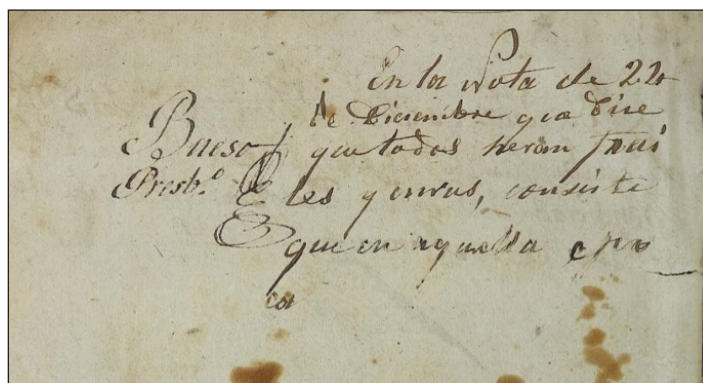 En la Nota de 22
de Diciembre que Dice
Bueso que todos heran frai
Presb.º les y curas, consiste
que en aquella epo
ca